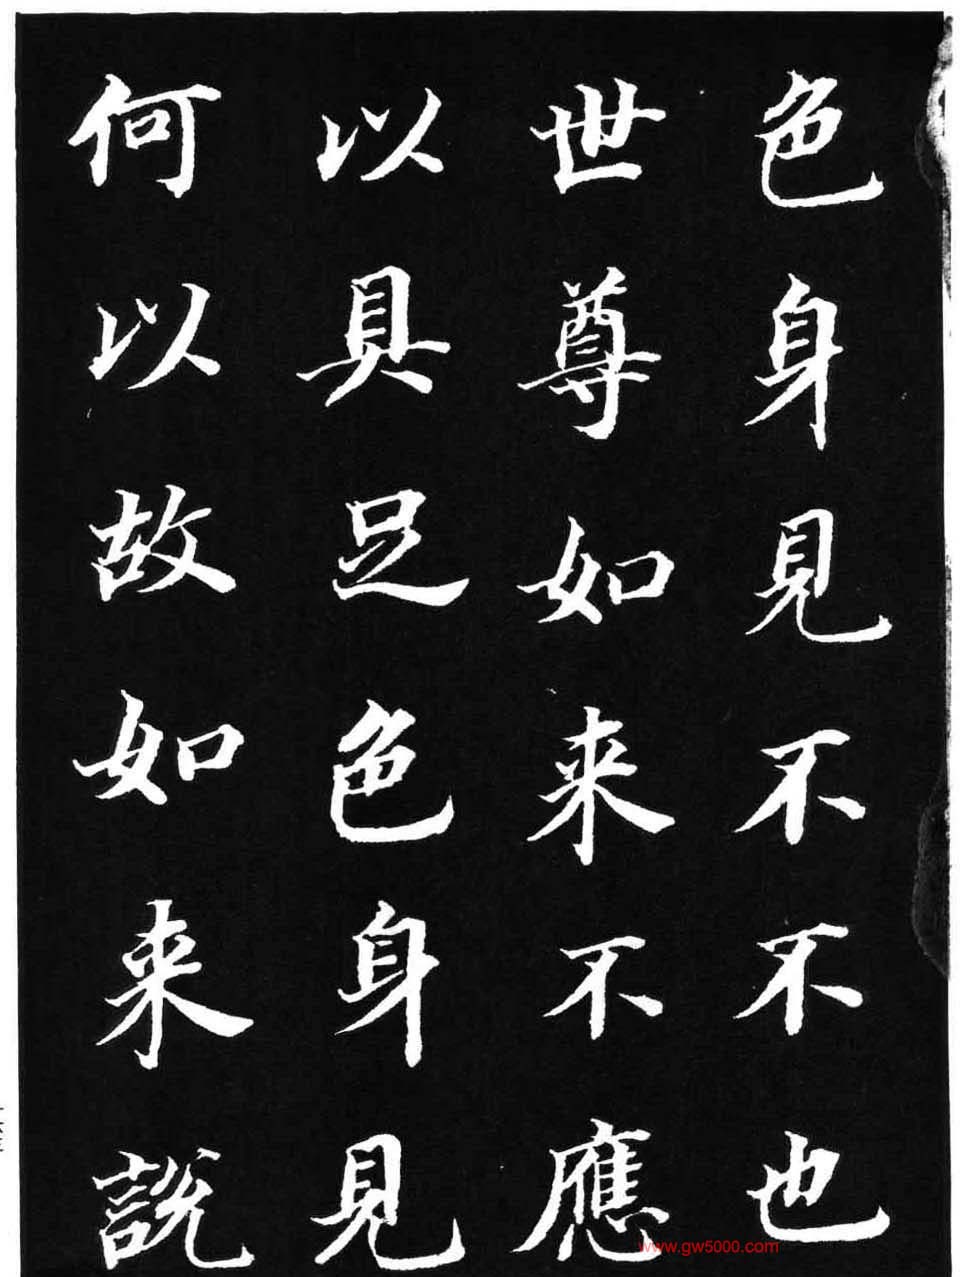 色身見不不也
世尊如来不應
以具足色身見
何以故如来說
www.gw5000.com